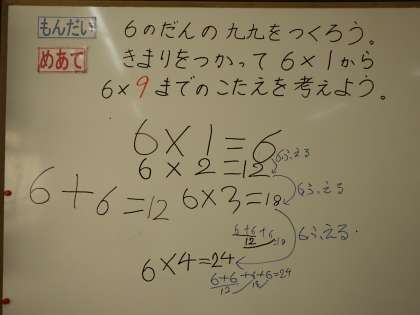 もんだい 6のだんの九九をつくろう。
めあて きまりをつかって6×1から
6×9までのこたえを考えよう。
6×1=6
6×2=12
6ふえる
6+6=12
6×3=18
6ふえる
6+6+6
12 18
6ふえる
6×4=24
6+6+6+6=24
12 18